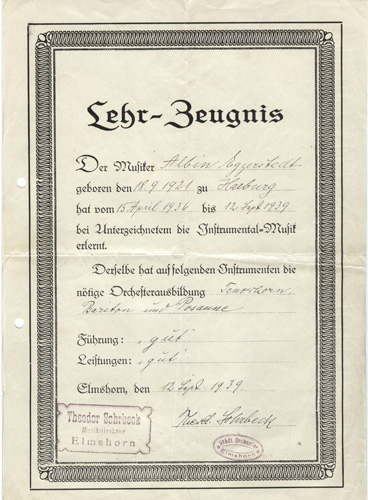 Lehr-Zeugnis
Der Musiker Albin Eggerstedt
geboren den 18.9.1921 zu Harburg
hat vom 15 April 1936 bis 12. Sept. 1939
bei Unterzeichnetem die Instrumental-Musik
erlernt.
Derselbe hat auf folgenden Instrumenten die
nötige Orchesterausbildung Tenorhorn,
Bariton und Posaune
Führung: gut
Leistungen: gut
Elmshorn, den 12 Sept. 1939
Theodor Sohrbeck
Musikdirektor
Elmshorn
Theod. Sohrbeck
Städt. Orchester
Elmshorn